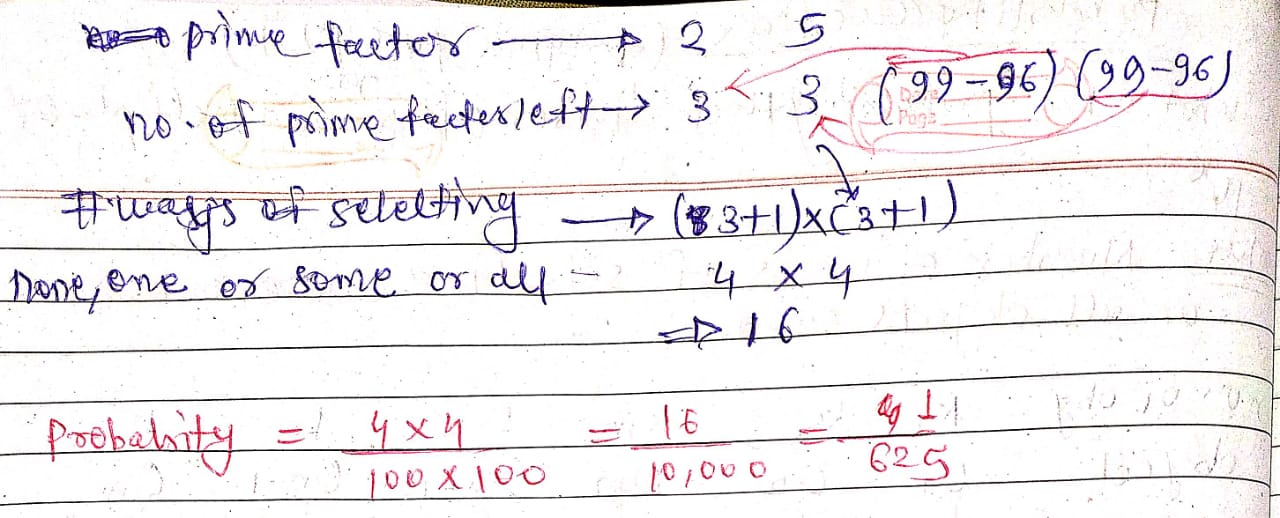 prime factor → 2 5
no. of prime facter left → 3 3 (99-96) (99-96)
# ways of selelting → (3+1)×(3+1)
None, one or some or all - 4 × 4
⇒ 16
Probabsity = 4×4/100×100 = 16/10,000 = 1/625